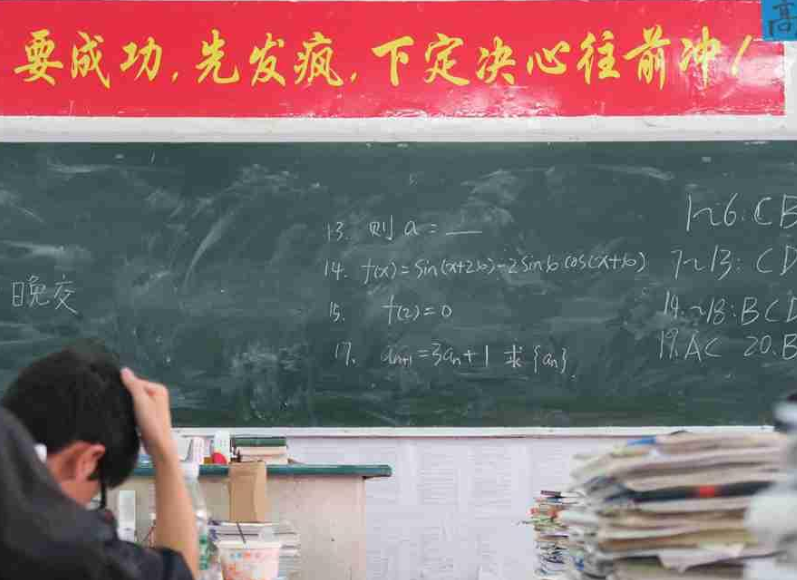 要成功,先发疯,下定决心往前冲!
高
晚交
13. 则 a = __
14. f(x) = sin(x+2φ)-2sinφcos(x+φ)
15. f(2)=0
17. aₙ₊₁=3aₙ+1 求{aₙ}.
1~6: CB
7~13: CD
14~18: BCD
19. AC 20. B